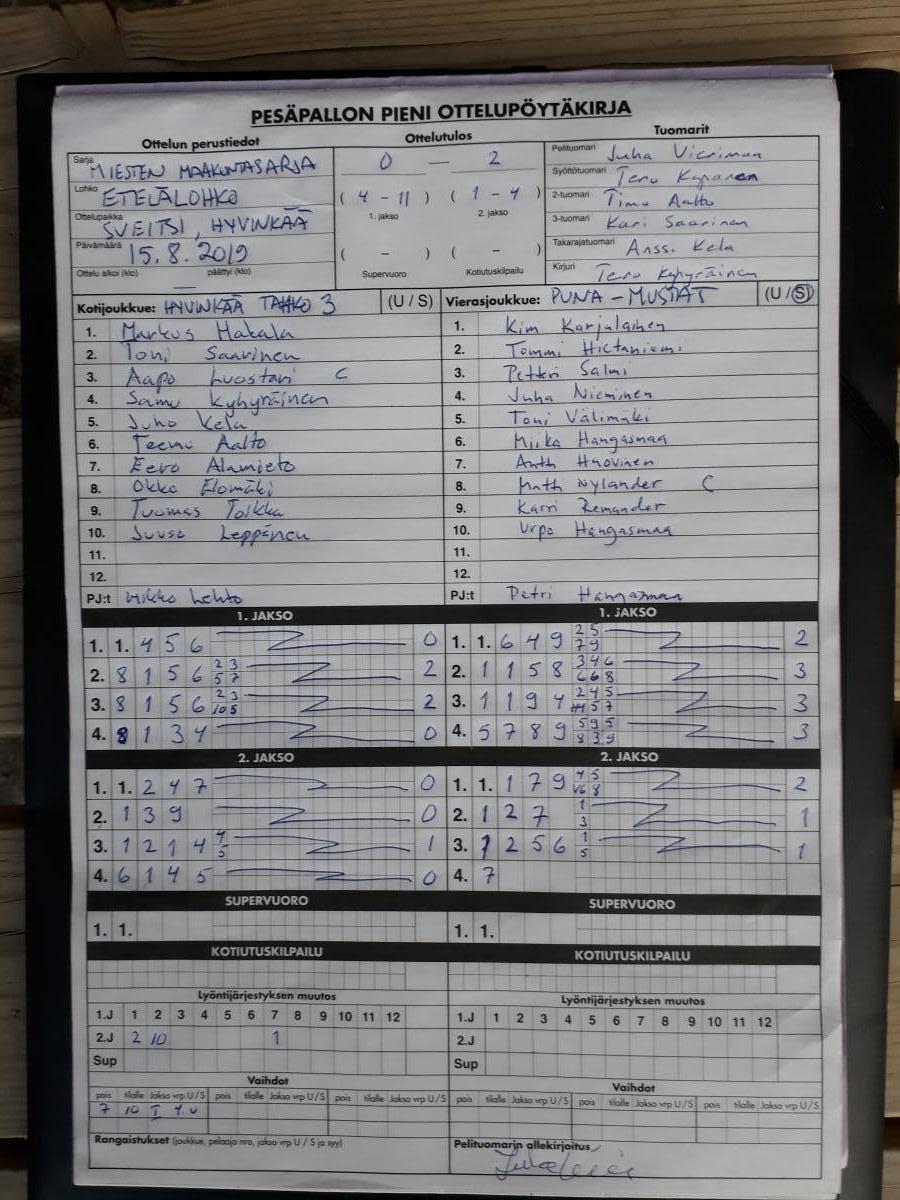 PESÄPALLON PIENI OTTELUPÖYTÄKIRJA
Ottelun perustiedot Ottelutulos Tuomarit
Sarja MIESTEN MAAKUNTASARJA
Lohko ETELÄLOHKO
Ottelupaikka SVEITSI, HYVINKÄÄ
Päivämäärä 15.8.2019
Ottelu alkoi (klo) päättyi (klo)
0 — 2
( 4 - 11 ) ( 1 - 4 )
1. jakso 2. jakso
( - ) ( - )
Supervuoro Kotiutuskilpailu
Pelituomari Juha Vierimaa
Syöttötuomari Tero
2-tuomari Timo Aalto
3-tuomari Kari Saarinen
Takarajatuomari Anssi Kela
Kirjuri Tero Kyhyräinen
Kotijoukkue: HYVINKÄÄ TAHKO 3 (U / S)
1. Markus Hakala
2. Toni Saarinen
3. Aapo Luostari C
4. Samu Kyhyräinen
5. Juho Kela
6. Teemu Aalto
7. Eero Alamieto
8. Okko Elomäki
9. Tuomas Toikka
10. Juuso Leppänen
11.
12.
PJ:t Mikko Lehto
Vierasjoukkue: PUNA-MUSTAT (U / S)
1. Kim Karjalainen
2. Tommi Hietaniemi
3. Petteri Salmi
4. Juha Nieminen
5. Toni Välimäki
6. Miika Hangasmaa
7. Antti Huovinen
8. Matti Nylander C
9. Karri Remander
10. Urpo Hangasmaa
11.
12.
PJ:t Petri Hangasmaa
1. JAKSO
1. 1. 4 5 6 0
2. 8 1 5 6 2 3 5 7 2
3. 8 1 5 6 2 3 10 5 2
4. 8 1 3 4 0
1. JAKSO
1. 1. 6 4 9 2 5 7 9 2
2. 1 1 5 8 3 4 6 6 6 8 3
3. 1 1 9 4 2 4 5 5 7 3
4. 5 7 8 9 5 9 5 8 3 9 3
2. JAKSO
1. 1. 2 4 7 0
2. 1 3 9 0
3. 1 2 1 4 4 5 1
4. 6 1 4 5 0
2. JAKSO
1. 1. 1 7 9 4 5 6 8 2
2. 1 2 7 1 3 1
3. 1 2 5 6 1 5 1
4. 7
SUPERVUORO SUPERVUORO
1. 1. 1. 1.
KOTIUTUSKILPAILU KOTIUTUSKILPAILU
Lyöntijärjestyksen muutos
1.J 1 2 3 4 5 6 7 8 9 10 11 12
2.J 2 10 1
Sup
Lyöntijärjestyksen muutos
1.J 1 2 3 4 5 6 7 8 9 10 11 12
2.J
Sup
Vaihdot Vaihdot
pois tilalle Jakso vrp U/S pois tilalle Jakso vrp U/S pois tilalle Jakso vrp U/S
7 10 I 4.U
pois tilalle Jakso vrp U/S pois tilalle Jakso vrp U/S pois tilalle Jakso vrp U/S
Rangaistukset (joukkue, pelaaja nro, jakso vrp U / S ja syy)
Pelituomarin allekirjoitus